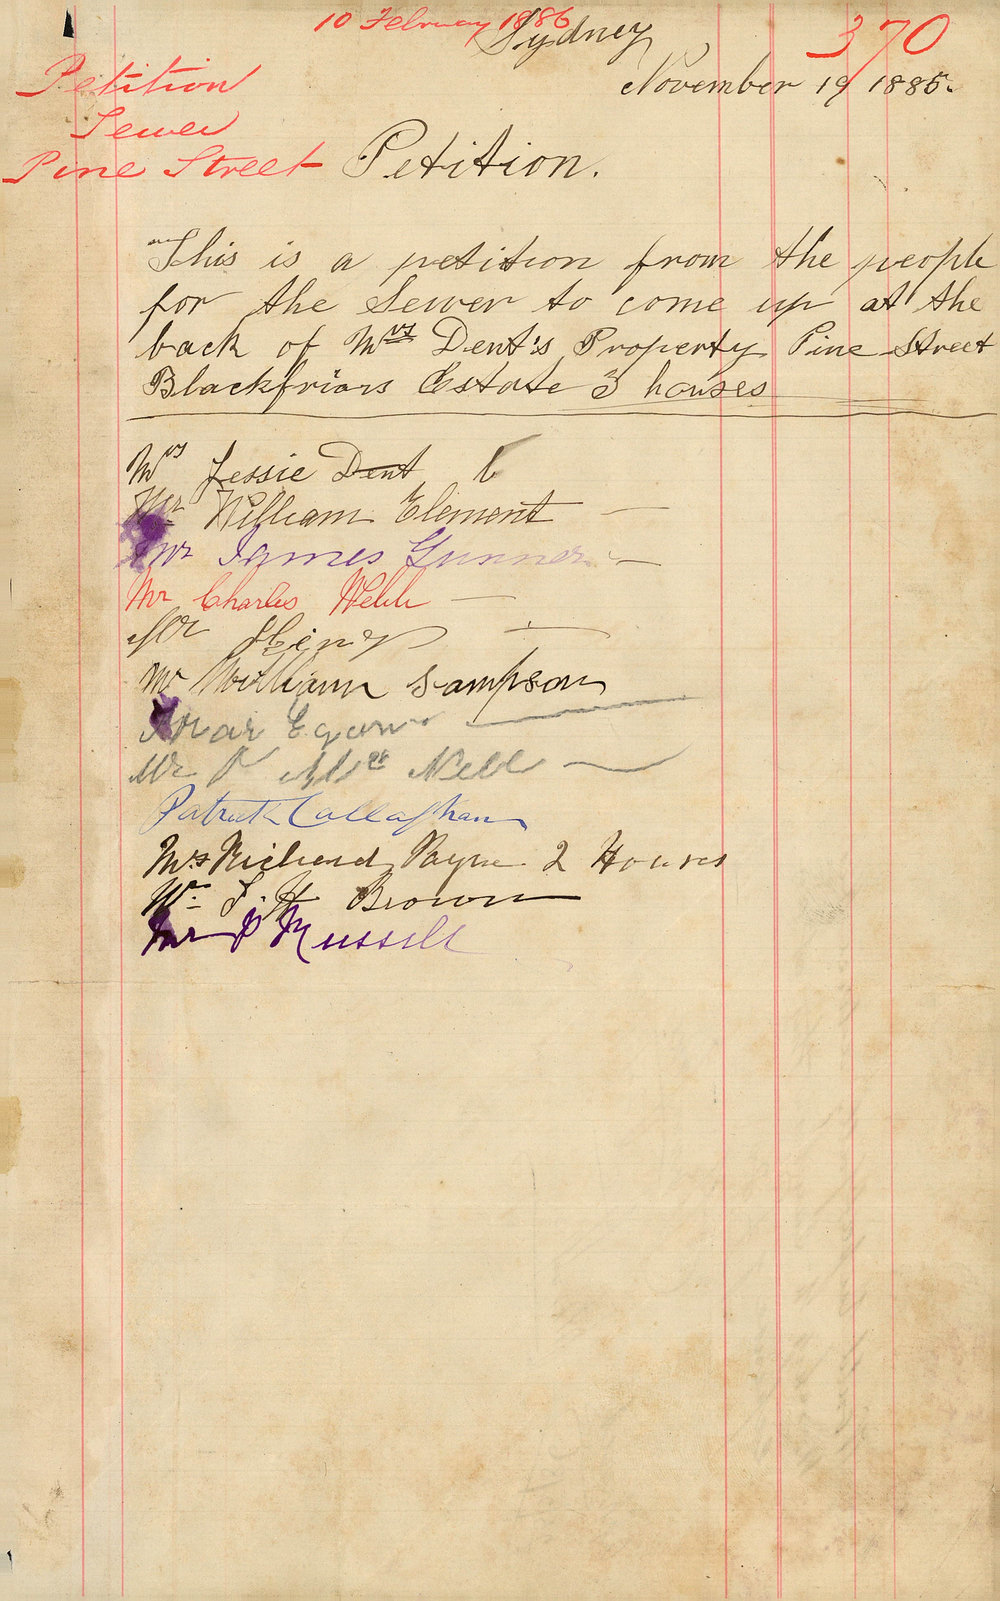 10 February 1886
370
Sydney
November 19 1885.
Petition
Sewer
Pine Street
Petition.
This is a petition from the people
for the Sewer to come up at the
back of Mrs Dent's Property Pine Street
Blackfriars Estate 3 houses
Mrs Jessie Dent
Mr William Element
Mr James Gunner
Mr Charles Webb
Mr
Mr William Sampson
Mr
Patrick Callaghan
Mrs Richard Payne 2 Houses
Mr F. H Brown
Mr P Russell